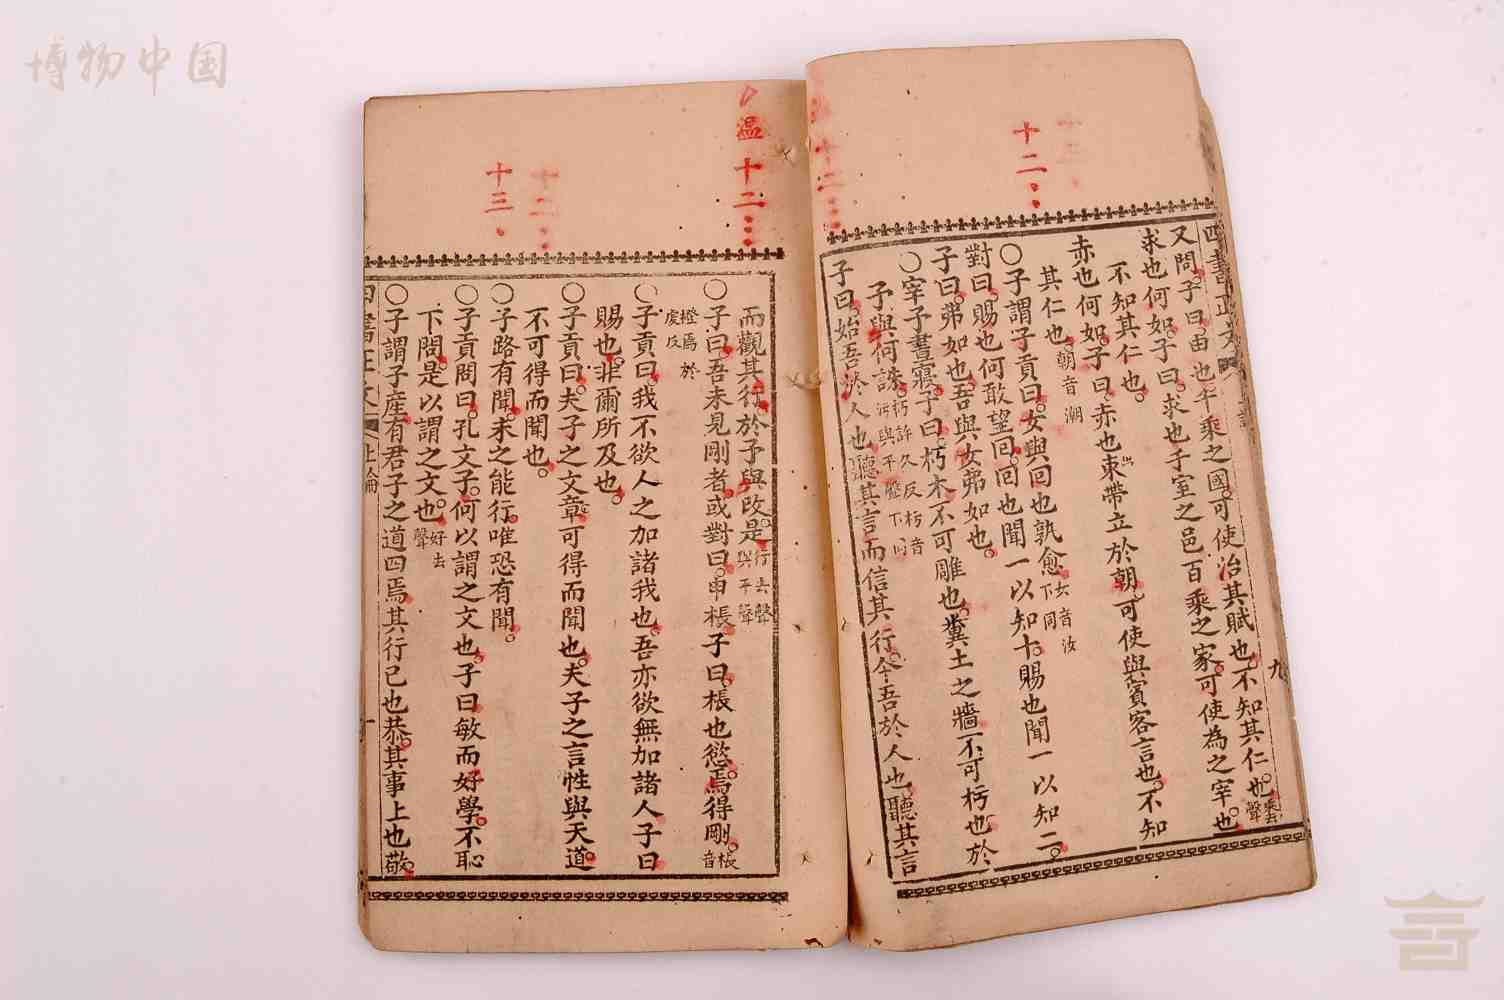 博物中国
十二
又問子曰由也千乘之國可使治其賦也不知其仁也乘去聲
求也何如子曰求也千室之邑百乘之家可使為之宰也
不知其仁也
赤也何如子曰赤也束帶立於朝可使與賓客言也不知
其仁也朝音潮
〇子謂子貢曰女與回也孰愈女音汝下同
對曰賜也何敢望回回也聞一以知十賜也聞一以知二
子曰弗如也吾與女弗如也
〇宰予晝寢子曰朽木不可雕也糞土之牆不可杇也於
予與何誅朽許久反杇音污與平聲下同
子曰始吾於人也聽其言而信其行今吾於人也聽其言
九
温十二
十三
而觀其行於予與改是行去聲與平聲
〇子曰吾未見剛者或對曰申棖子曰棖也慾焉得剛棖音
橙焉於虔反
〇子貢曰我不欲人之加諸我也吾亦欲無加諸人子曰
賜也非爾所及也
〇子貢曰夫子之文章可得而聞也夫子之言性與天道
不可得而聞也
〇子路有聞未之能行唯恐有聞
〇子貢問曰孔文子何以謂之文也子曰敏而好學不恥
下問是以謂之文也好去聲
〇子謂子產有君子之道四焉其行己也恭其事上也敬
上論